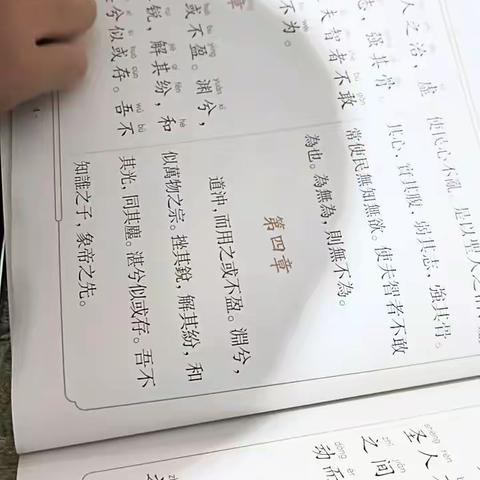 人之治，虚
志，强其骨
夫智者不敢
不为。
章
或不盈。渊兮，
锐，解其纷，和
兮似或存。吾不
使民心不亂。是以聖人之治
其心，實其腹，弱其志，強其骨。
常使民無知無欲。使夫智者不敢
為也。為無為，則無不為。
第四章
道沖，而用之或不盈。淵兮，
似萬物之宗。挫其銳，解其紛，和
其光，同其塵。湛兮似或存。吾不
知誰之子，象帝之先。
圣人
之间
动而